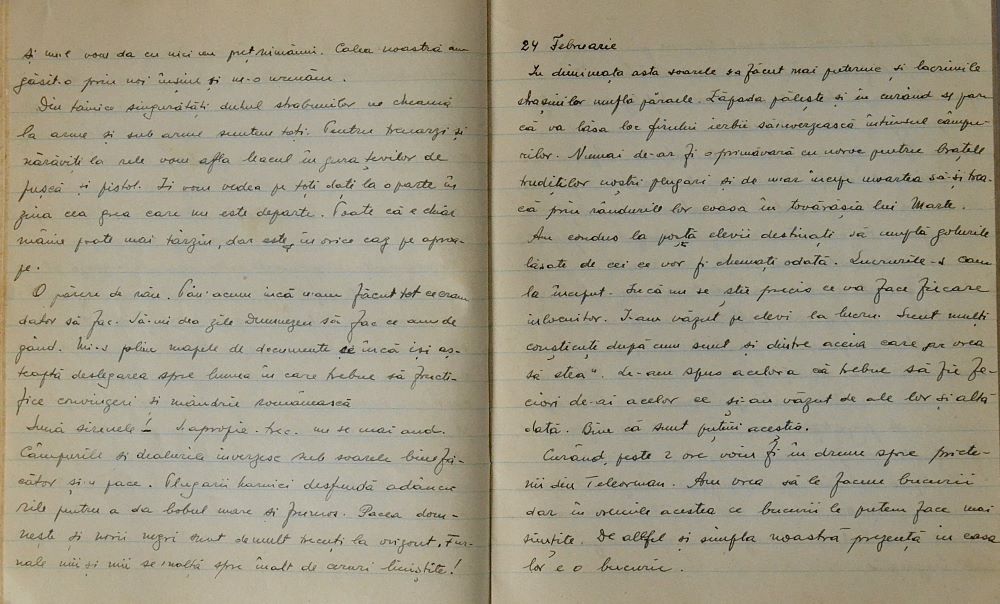 Și nu-l vom da cu nici un preț nimănui. Calea noastră am
găsit-o prin noi înșine și ne-o urmăm.
Din tainice singurătăți duhul strabunilor ne cheamă
la arme și sub arme suntem toți. Pentru trenarzi și
nărăviți la rele vom afla leacul în gura țevilor de
pușcă și pistol. Îi vom vedea pe toți dați la o parte în
ziua cea grea care nu este departe. Poate că e chiar
mâine poate mai târziu, dar este, în orice caz pe aproa-
pe.
O părere de rău. Pân'acum încă n-am făcut tot ce eram
dator să fac. Să-mi dea zile Dumnezeu să fac ce am de
gând. Mi-s pline mapele de documente ce încă își aș-
teaptă deslegarea spre lumea în care trebue să fructi-
fice convingeri și mândrie românească
Sună sirenele! S-apropie. trec. nu se mai aud.
Câmpurile și dealurile inverzesc sub soarele binefă-
cător și-n pace. Plugarii harnici desfundă adâncu-
rile pentru a da bobul mare și frumos. Pacea dom-
nește și norii negri sunt demult trecuți la orizont, Fur-
nale mii și mii se înalță spre înalt de ceruri liniștite!
24 Februarie
In dimineața asta soarele s-a făcut mai puternic și lacrimile
strasinilor umflă păraele. Zăpada pălește și în curând se pare
că va lăsa loc firului ierbii să înverzească întinsul câmpu-
rilor. Numai de-ar fi o primăvară cu noroc pentru brațele
trudiților noștri plugari și de n-ar începe moartea să-și trea-
că prin rândurile lor coasa în tovărășia lui Marte.
Am condus la poștă elevii destinați să umplă golurile
lăsate de cei ce vor fi chemați odată. Lucrurile-s cam
la început. Încă nu se știe precis ce va face fiecare
inlocuitor. I-am văzut pe elevi la lucru. Sunt mulți
conștiincți după cum sunt și dintre aceia care „ar vrea
să stea". Le-am spus acelora că trebue să fie fe-
ciori de-ai acelor ce și-au văzut de ale lor și altă
dată. Bine că sunt puțini aceștia.
Curând, peste 2 ore voiu fi în drum spre priete-
nii din Teleorman. Am vrea să le facem bucurii
dar în vremile acestea ce bucurii le putem face mai
simțite. De altfel și simpla noastră prezență în casa
lor e o bucurie.